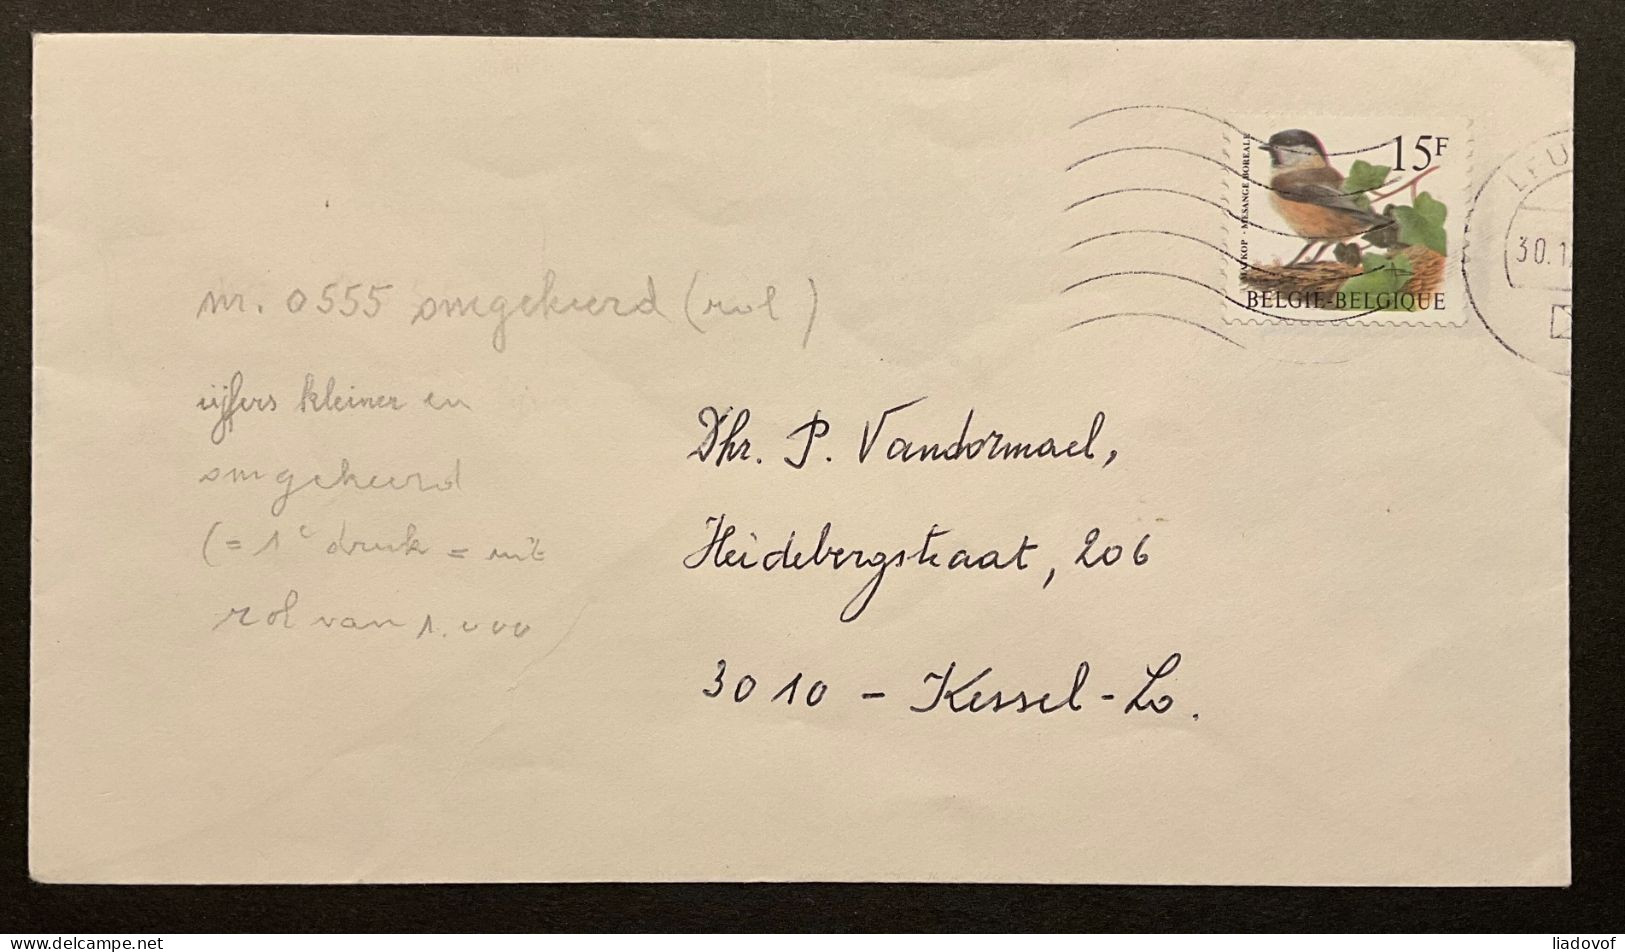 15F
MATKOP · MESANGE BOREALE
BELGIE-BELGIQUE
LEU
30.1
nr. 0555 omgekeerd (rol)
cijfers kleiner en
omgekeerd
(= 1e druk = uit
rol van 1.000)
Dhr. P. Vandormael,
Heidebergstraat, 206
3010 - Kessel-Lo.
www.delcampe.net
liadovof